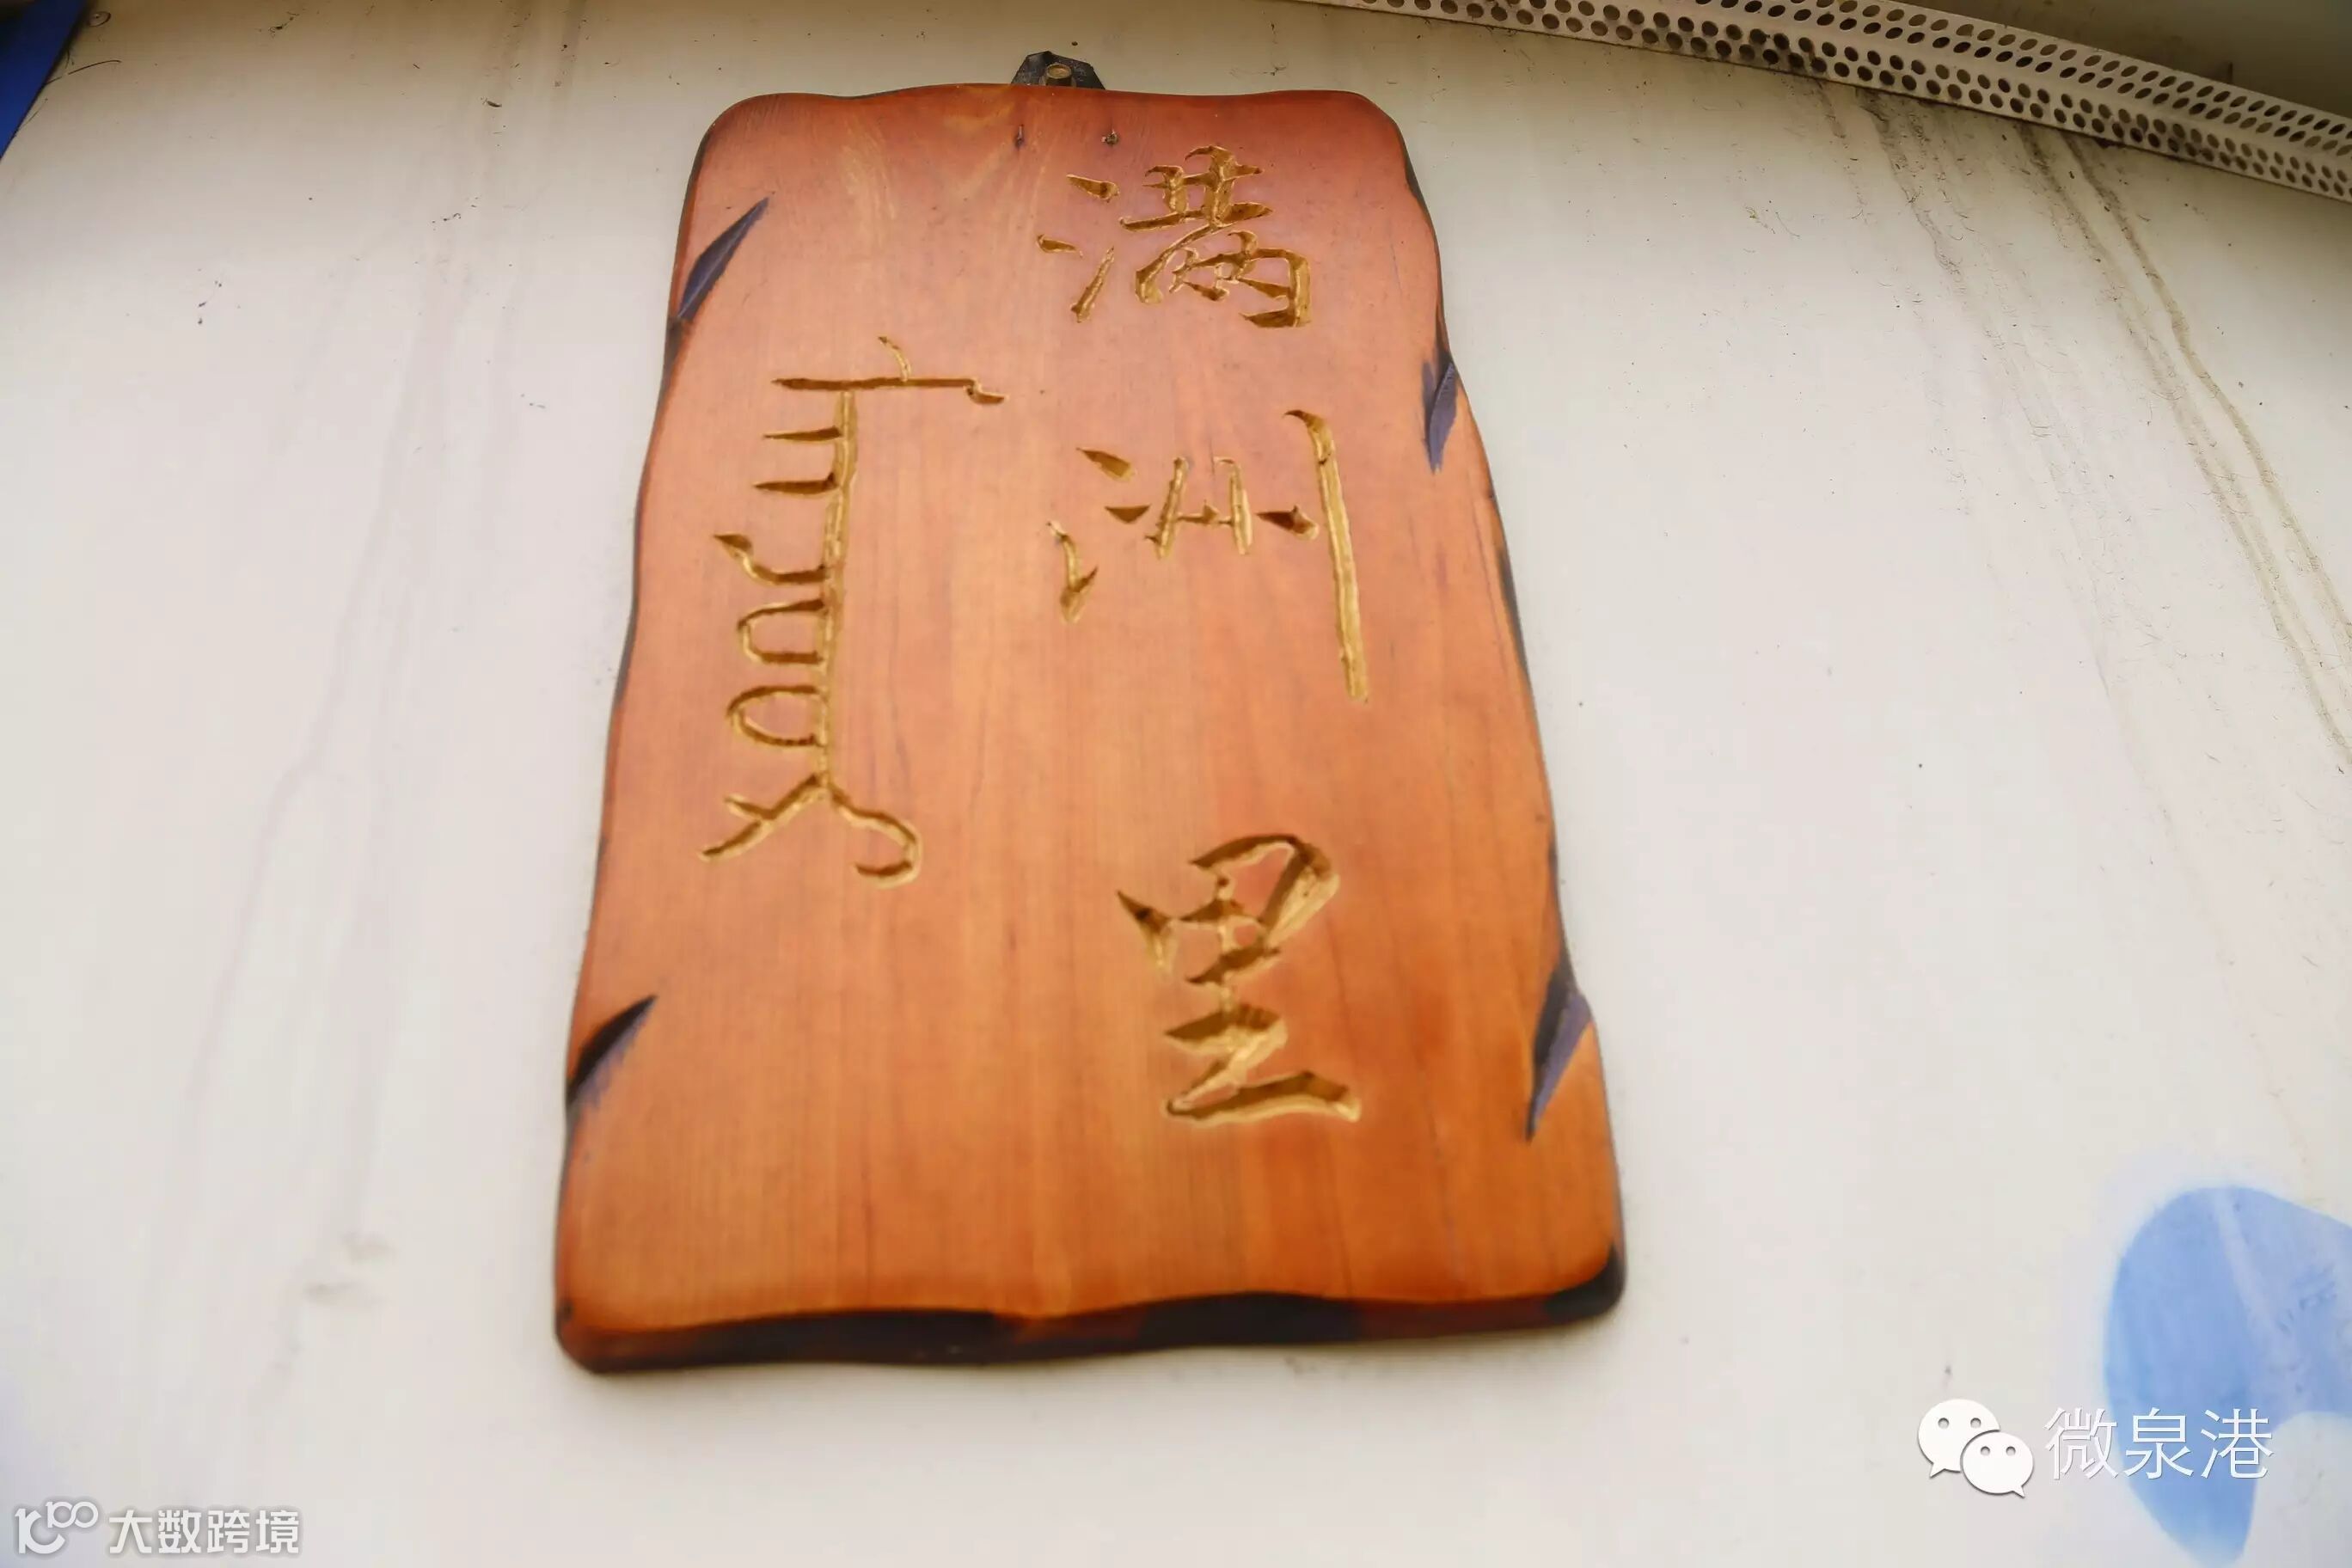 ᠮᠠᠨᠵᠤᠤᠷ
满洲里
微泉港
大数跨境